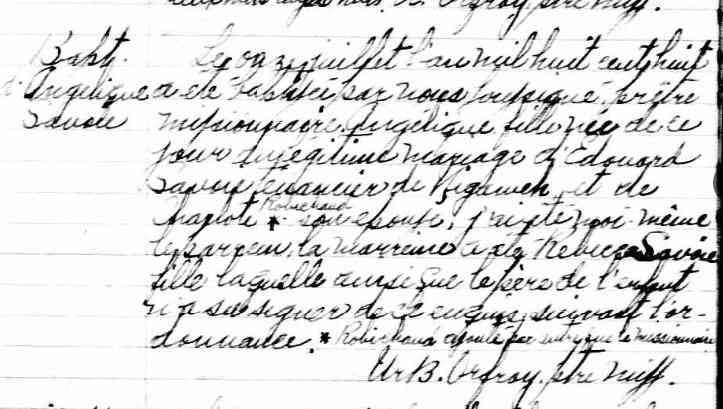 Urb. Orfroy, ptre miss.
Bapt. Le onze juillet l'an mil huit cent huit
d'Angelique a été baptisé par nous soussigné, prêtre
Savoie missionnaire, Angelique, fille née de ce
jour du légitime mariage d'Edouard
Savoie tenancier de et de
Charlote * Robichaud son épouse; j'ai été moi-même
le parrein, la marreine a été Rebecca Savoie
fille laquelle ainsi que le père de l'enfant
n'a su signer de ce enquis suivant l'or-
donnance. * Robichaud ajouté par que le missionnaire
Ur B. Orfroy. ptre miss.